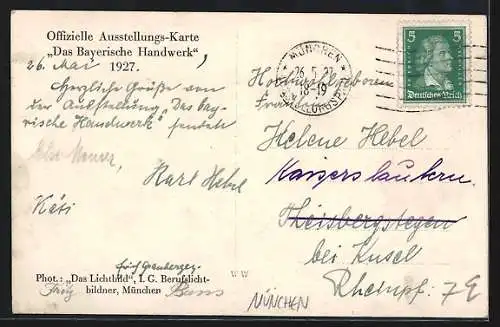 Offizielle Ausstellungs-Karte
"Das Bayerische Handwerk"
1927.
26. Mai
Herzliche Grüße von
der Ausstellung "Das bay-
rische Handwerk" sendet
Karl Hebel
Käti
Phot.: "Das Lichtbild", I. G. Berufslicht-
bildner, München
Fritz
Hans
W W
MÜNCHEN
MÜNCHEN
26.5.27
18-19
5 5
Deutsches Reich
Hochwohlgeboren
Helene Hebel
Kaiserslautern
Theisbergstegen
bei Kusel
Rheinpf. 79